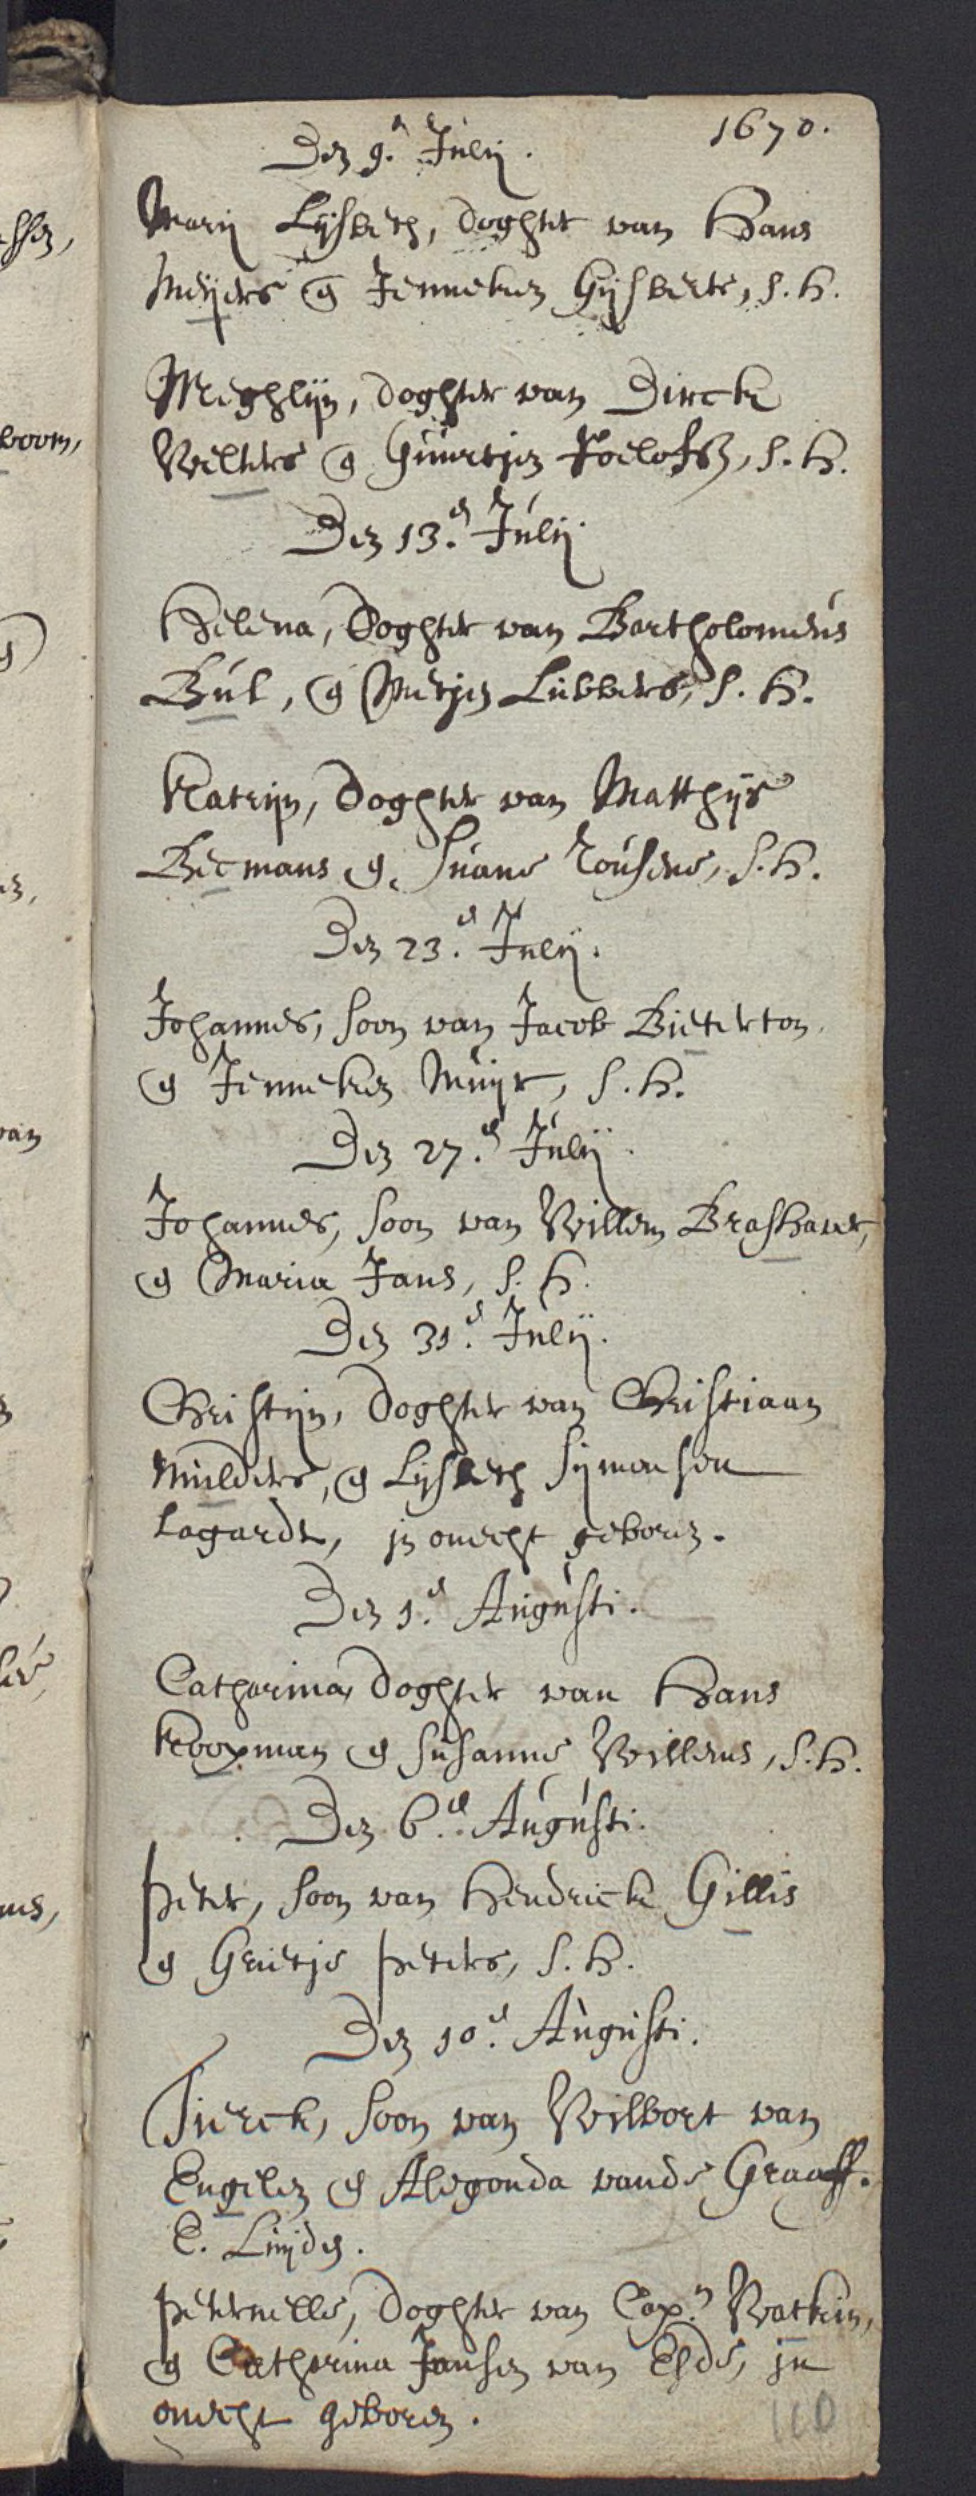 1670.
Den 9.n Julij.
Marij Lijsbeth, doghter van Hans
Meijers & Jenneken Gijsberts, S. H.
Meghlijn, doghter van Dirck
Welters & Guurtjen Roelofsz, S. H.
Den 13.n Julij.
Helena, Doghter van Bartholomeus
Bul, & Metjen Lubbers, S. H.
Katrijn, Doghter van Matthijs
Becmans & Susane S. H.
Den 23.n Julij.
Johannes, soon van Jacob Bieterton
& Jenneken Muijr, S. H.
Den 27.n Julij.
Johannes, soon van Willem Brashauer,
& Maria Jans, S. H.
Den 31.n Julij.
Christijn, Doghter van Christiaan
Mulders, & Lijsbeth Sijmonsen
Lagarde, in onecht geboren.
Den 1.n Augusti.
Catharina, doghter van Hans
Koopman & Susanne Willems, S. H.
Den 6.n Augusti.
Peter, soon van Hendrick Gillis
& Grietje Peters, S. H.
Den 10.n Augusti.
Tierck, soon van Wilbort van
Engelen & Alegonda vande Graaff.
E. Luijden.
Peternelle, Doghter van Cap.n Watkin,
& Catharina Jansen van Ehde, in
onecht geboren.
110